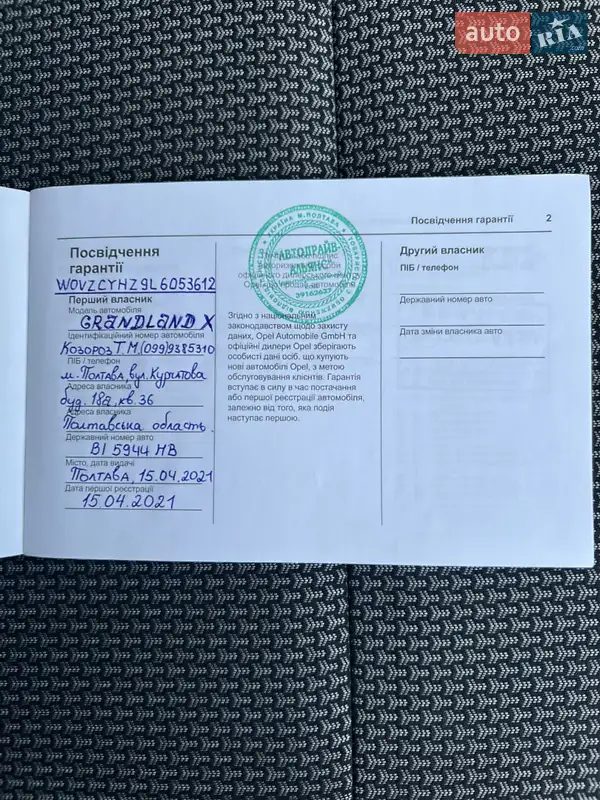 auto RIA.com
Посвідчення гарантії 2
Посвідчення
гарантії
W0VZCYHZ9L6053612
Перший власник
Модель автомобіля
GRANDLAND X
Ідентифікаційний номер автомобіля
Козороз Т.М. (099)9385310
ПІБ / телефон
м. Полтава, вул. Курчатова
Адреса власника
буд. 18а, кв. 36
Адреса власника
Полтавська область
Державний номер авто
BI 5944 HB
Місто, дата видачі
Полтава, 15.04.2021
Дата першої реєстрації
15.04.2021
УКРАЇНА М.ПОЛТАВА
АВТОДРАЙВ
АЛЬЯНС
39162637
Згідно з національним
законодавством щодо захисту
даних, Opel Automobile GmbH та
офіційні дилери Opel зберігають
особисті дані осіб, що купують
нові автомобілі Opel, з метою
обслуговування клієнтів. Гарантія
вступає в силу в час постачання
або першої реєстрації автомобіля,
залежно від того, яка подія
наступає першою.
Другий власник
ПІБ / телефон
Державний номер авто
Дата зміни власника авто